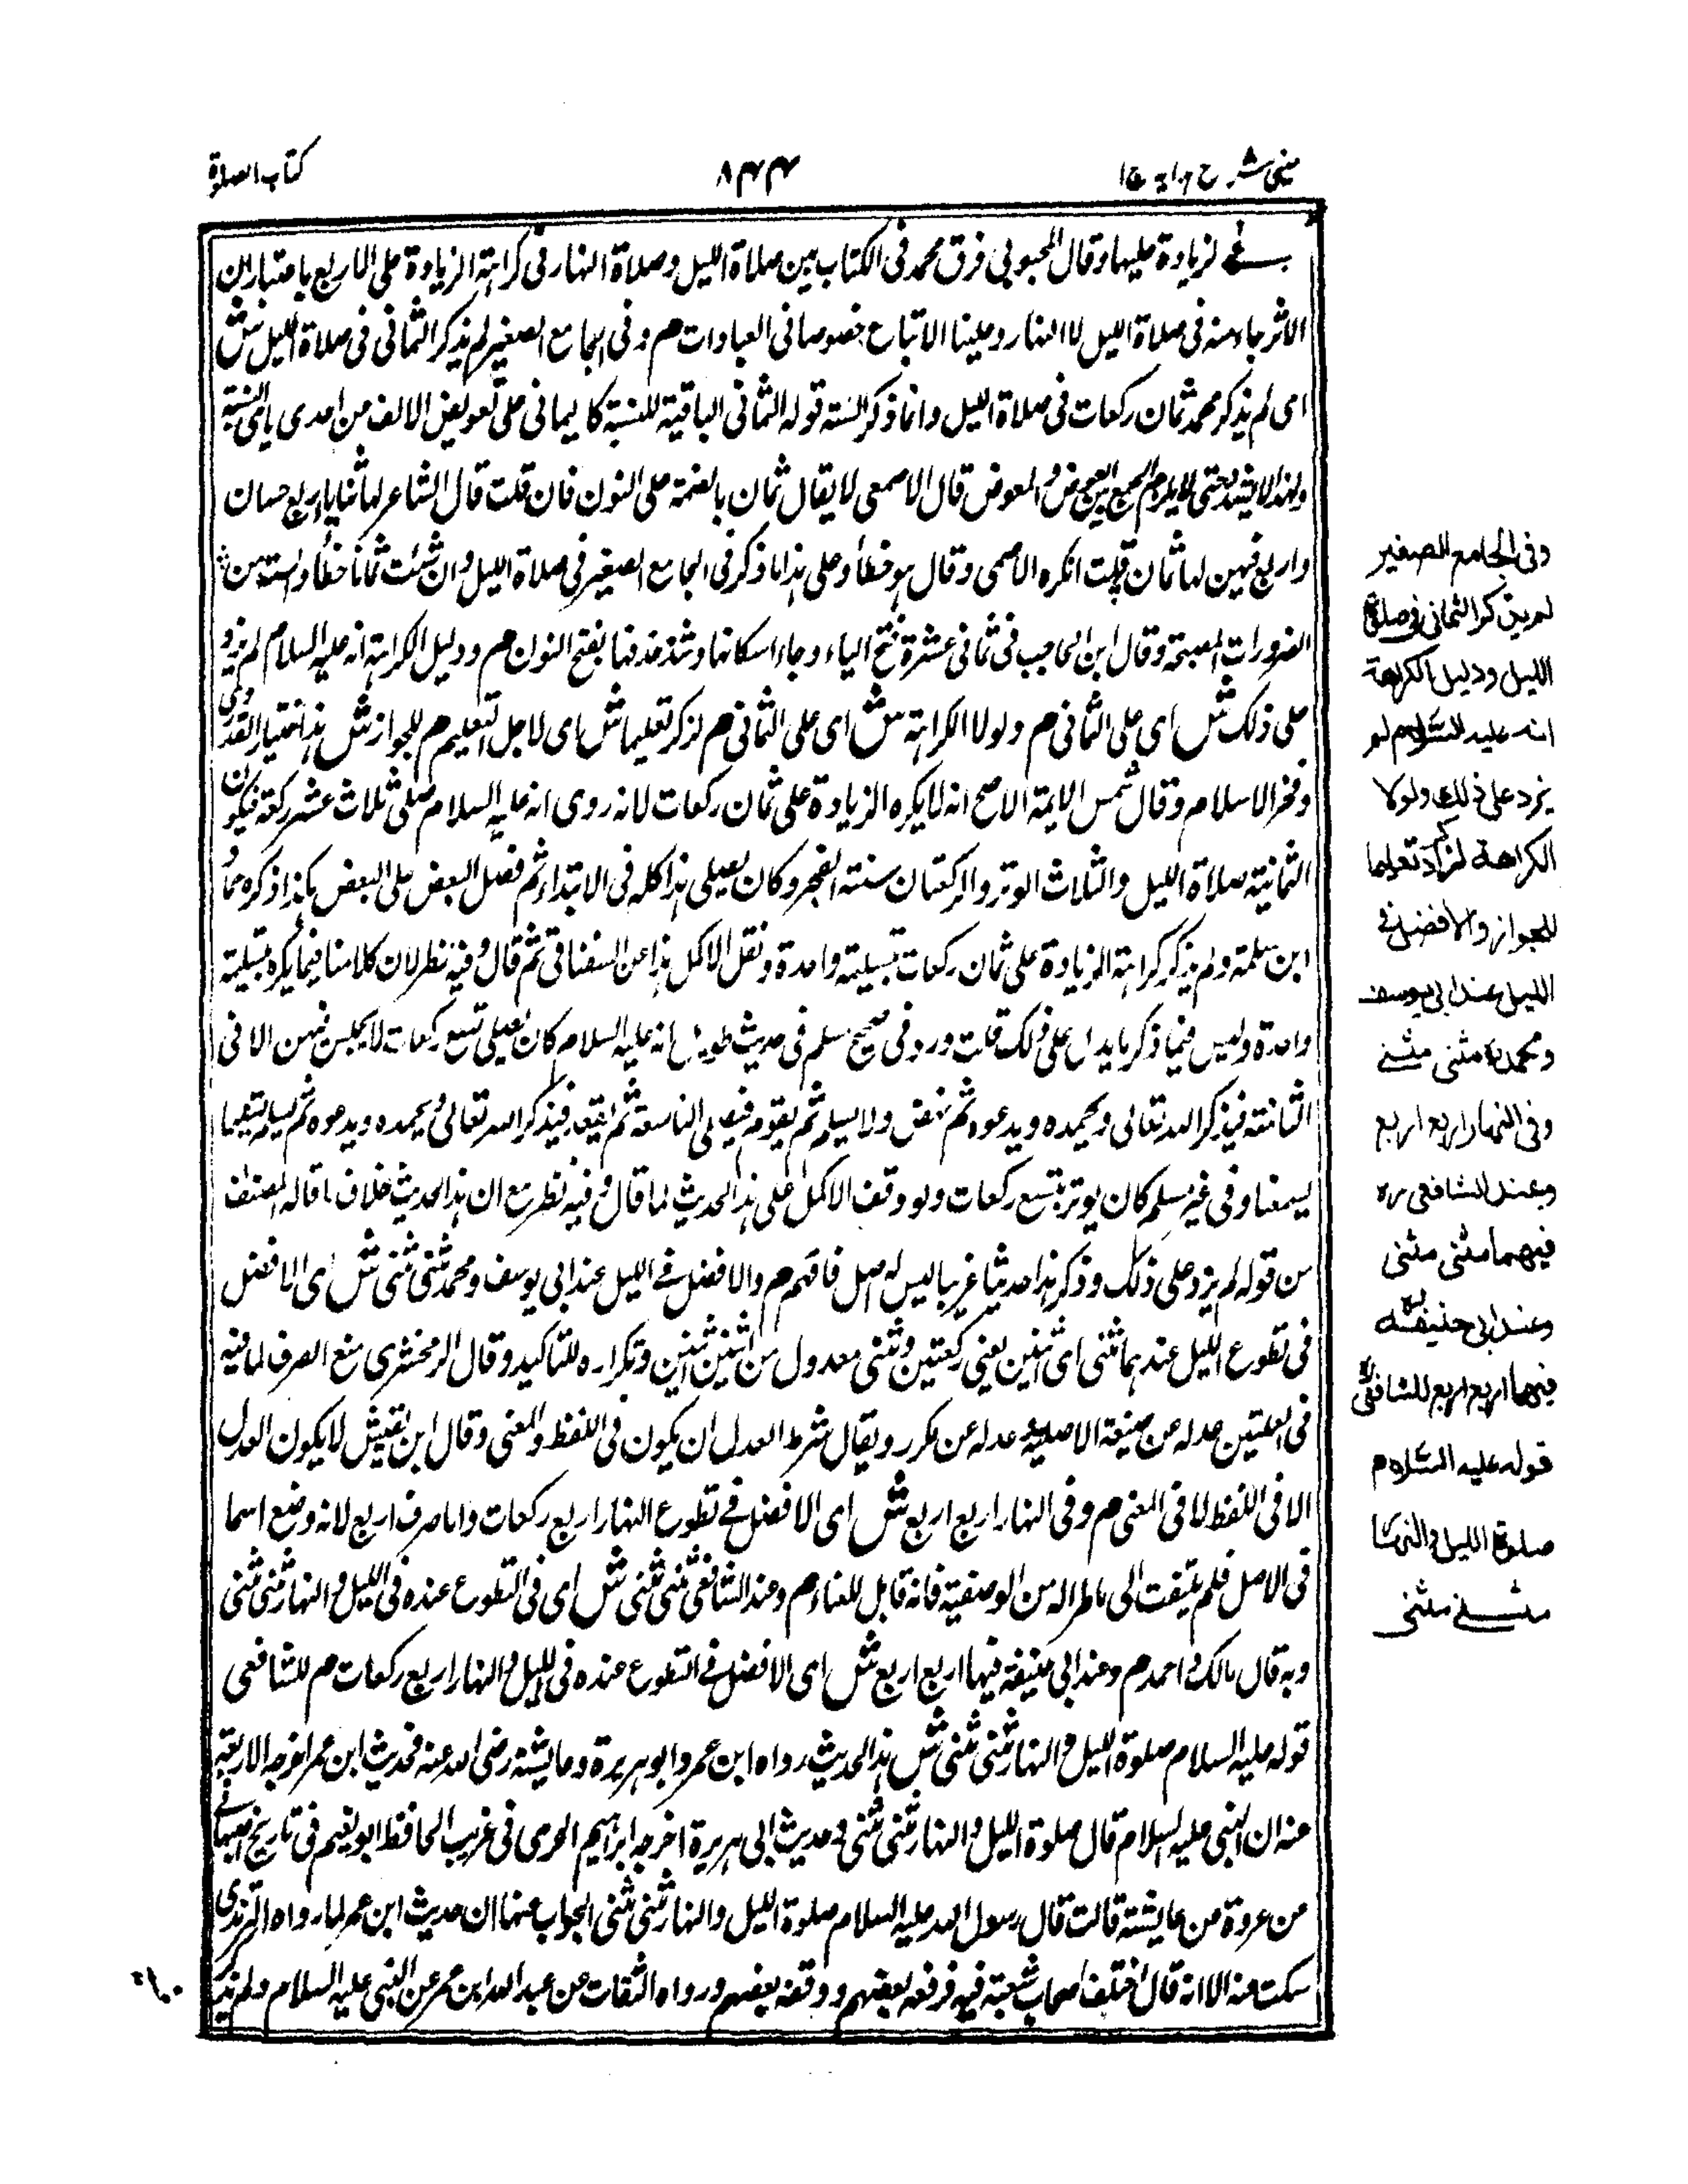 عینی شرح ہدایہ ج۱
۸۴۴
کتاب الصلوۃ
لزيادة عليها وقال المحبوبي فرق محمد في الكتاب بين صلاة الليل وصلاة النهار في كراهة الزيادة على الاربع باعتبار ان
الاثر جاء منه في صلاة الليل لا النهار وعلينا الاتباع خصوصا في العبادات م وفي الجامع الصغير لم يذكر الثماني في صلاة الليل ش
اى لم يذكر محمد ثمان ركعات في صلاة الليل وانما ذكر الستة قوله الثماني الباقية للنسبة كاليماني على تعويض الالف من احدى يائي النسبة
ولهذا لا يشدد حتى لا يلزم الجمع بين العوض والمعوض قال الاصمعي لا يقال ثمان بالضمة على النون فان قلت قال الشاعر لها ثنايا اربع حسان
واربع فهين لها ثمان قلت انكره الاصمعي وقال هو خطأ وعلى هذا ما ذكر في الجامع الصغير في صلاة الليل وان شئت ثمانا خطأ من
الضرورات وقال ابن الحاجب في ثماني عشرة فتح الياء وجاء اسكانها وشذ حذفها بفتح النون م ودليل الكراهة انه عليه السلام لم يزد
على ذلك ش اى على الثماني م ولولا الكراهة ش اى على الثماني م لزاد تعليما ش اى لاجل التعليم م للجواز ش هذا اختيار القدوري
وفخر الاسلام وقال شمس الايمة الاصح انه لا يكره الزيادة على ثمان ركعات لانه روى انه عليه السلام صلى ثلاث عشر ركعة فيكون
الثمانية صلاة الليل والثلاث الوتر والركعتان سنة الفجر وكان يصلي هذا كله في الابتداء ثم فضل البعض على البعض هكذا ذكره حماد
ابن سلمة ولم يذكر كراهة الزيادة على ثمان ركعات بتسليمة واحدة ونقل الاكمل هذا عن السغناقي ثم قال وفيه نظر لان كلامنا فيما يكره بتسليمة
واحدة وليس فيما ذكر ما يدل على ذلك قلت ورد في صحيح مسلم في حديث طويل انه عليه السلام كان يصلي تسع ركعات لا يجلس فيهن الا في
الثامنة فيذكر الله تعالى ويحمده ويدعوه ثم ينهض ولا يسلم ثم يقوم فيصلى التاسعة ثم يقعد فيذكر الله تعالى ويحمده ويدعوه ثم يسلم تسليما
يسمعنا وفي غير مسلم كان يوتر بتسع ركعات ولو وقف الاكمل على هذا الحديث لما قال وفيه نظر مع ان هذا الحديث خلاف ما قاله المصنف
من قوله لم يزد على ذلك وذكر هذا حديثا غريبا ليس له اصل فافهم م والافضل في الليل عند ابي يوسف ومحمد مثنى مثنى ش اى الافضل
في تطوع الليل عندهما مثنى اى اثنين يعني ركعتين ومثنى معدول من اثنين اثنين وتكراره للتاكيد وقال الزمخشري منع الصرف لما فيه
في العلتين عدله من صيغة الاصلية وعدله عن مكرر ويقال شرط العدل ان يكون في اللفظ والمعنى وقال ابن يعيش لا يكون العدل
الا في اللفظ لا في المعنى م وفي النهار اربع اربع ش اى الافضل في تطوع النهار اربع ركعات واما صرف اربع لانه وضع اسما
في الاصل فلم يلتفت الى ما طرا له من الوصفية فانه قابل للفاء م وعند الشافعي مثنى مثنى ش اى في التطوع عنده في الليل والنهار مثنى مثنى
وبه قال مالك واحمد م وعند ابي حنيفة فيها اربع اربع ش اى الافضل في التطوع عنده في الليل والنهار اربع ركعات م للشافعي
قوله عليه السلام صلوة الليل والنهار مثنى مثنى ش هذا الحديث رواه ابن عمر وابو هريرة وعايشة رضى الله عنه فحديث ابن عمر اخرجه الاربعة
عنه ان النبي عليه السلام قال صلوة الليل والنهار مثنى مثنى وحديث ابي هريرة اخرجه ابراهيم الحربي في غريب الحافظ ابو نعيم في تاريخ اصبهان
من عروة من عايشة قالت قال رسول الله عليه السلام صلوة الليل والنهار مثنى مثنى الجواب عنها ان حديث ابن عمر لما رواه الترمذي
سكت عنه الا انه قال اختلف اصحاب شعبة فيه فرفعه بعضهم ووقفه بعضهم ورواه الثقات عن عبد الله ابن عمر عن النبي عليه السلام ولم يذكر
وفى الجامع الصغير
لم يذكر الثماني فى صلوة
الليل ودليل الكراهة
انه عليه السلام لم
يزد على ذلك ولولا
الكراهة لزاد تعليما
للجواز والافضل فى
الليل عند ابى يوسف
ومحمد رح مثنى مثنى
وفى النهار اربع اربع
وعند الشافعى رح
فيهما مثنى مثنى
وعند ابى حنيفة رح
فيهما اربع اربع للشافعى رح
قوله عليه السلام
صلوة الليل والنهار
مثنى مثنى